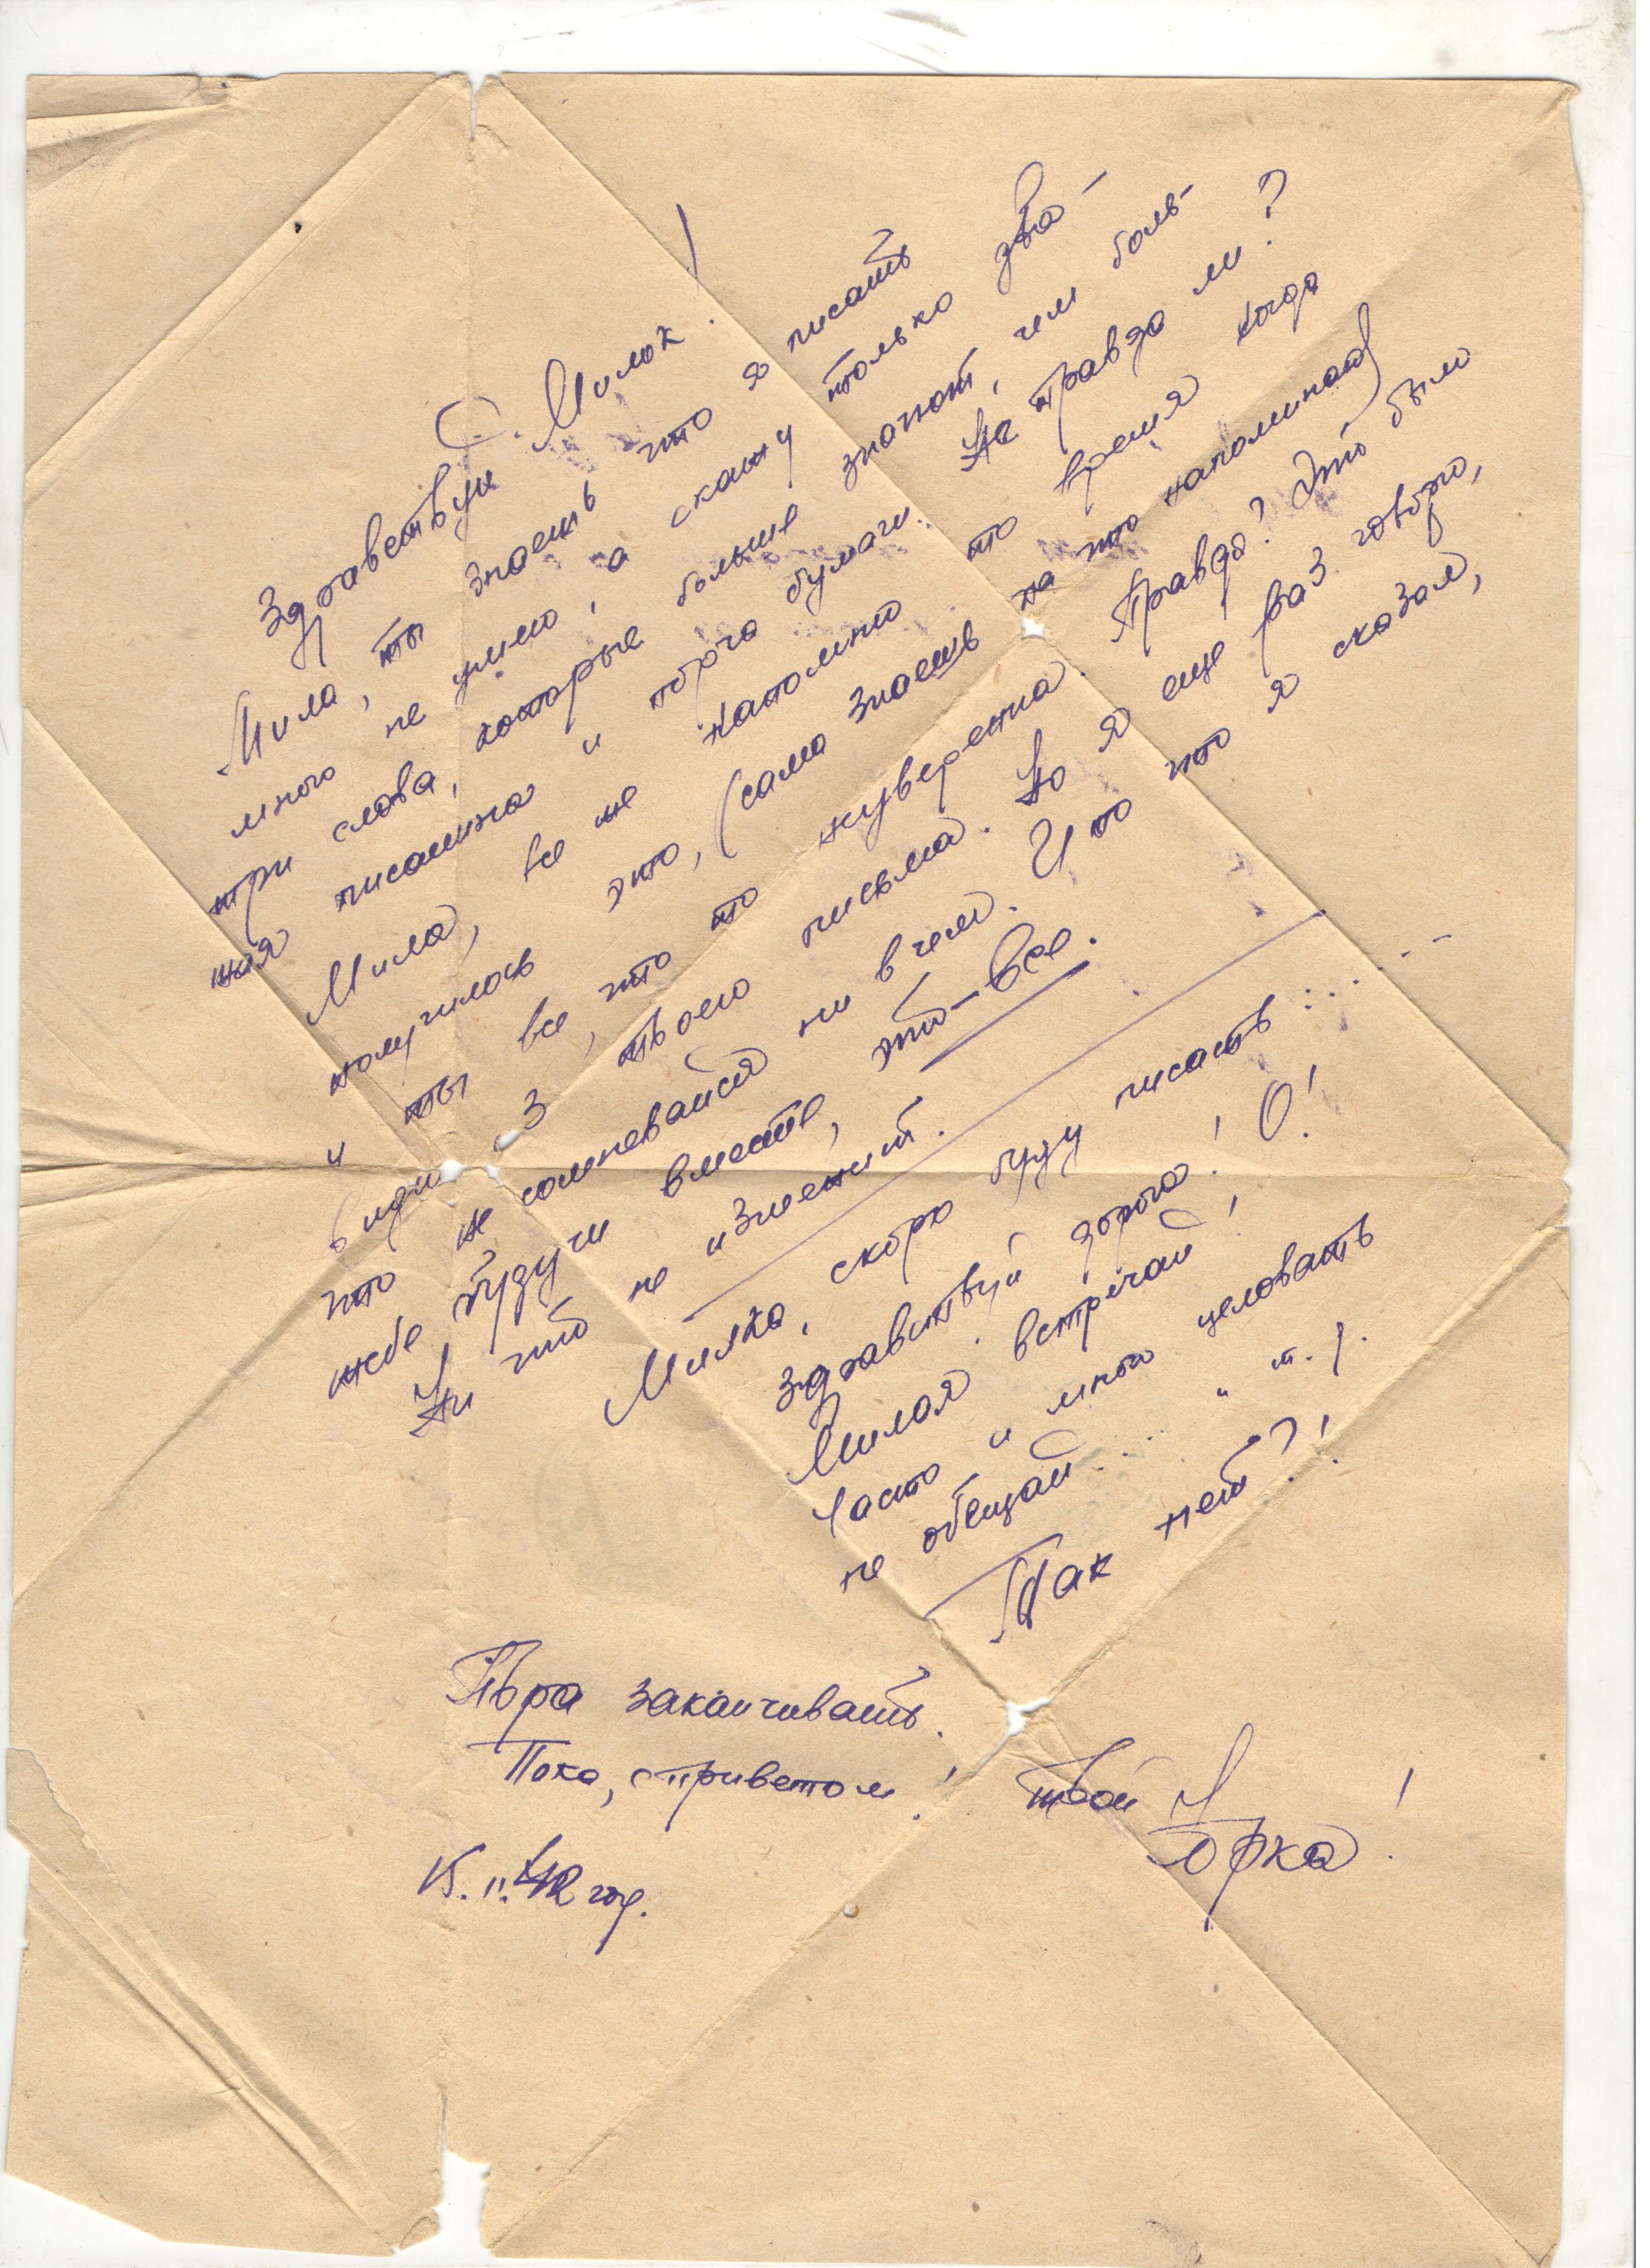 Здравствуй С. Милок!
Мила, ты знаешь что я писать
много не умею, а скажу только два-
три слова, которые больше значат, чем боль-
шая писанина и трата бумаги. Не правда ли?
Мила, все же напомню то время когда
получилось это, (сама знаешь на что напоминаю)
и ты все, что то неуверенна. Правда? Это было
видно з твоего письма. Но я еще раз говорю,
что не сомневайся ни в чем. И то что я сказал,
тебе будучи вместе, это - все.
Ни что не изменит.
Милка, скоро буду писать : . . . . -
здравствуй дорогая! О!
Милая встречай!
Часто и много целовать
не обещай . . . . и т. д.
Так нет?!
Пора заканчивать.
Пока, с приветом! твой Юрка!
15. II. 42 год.